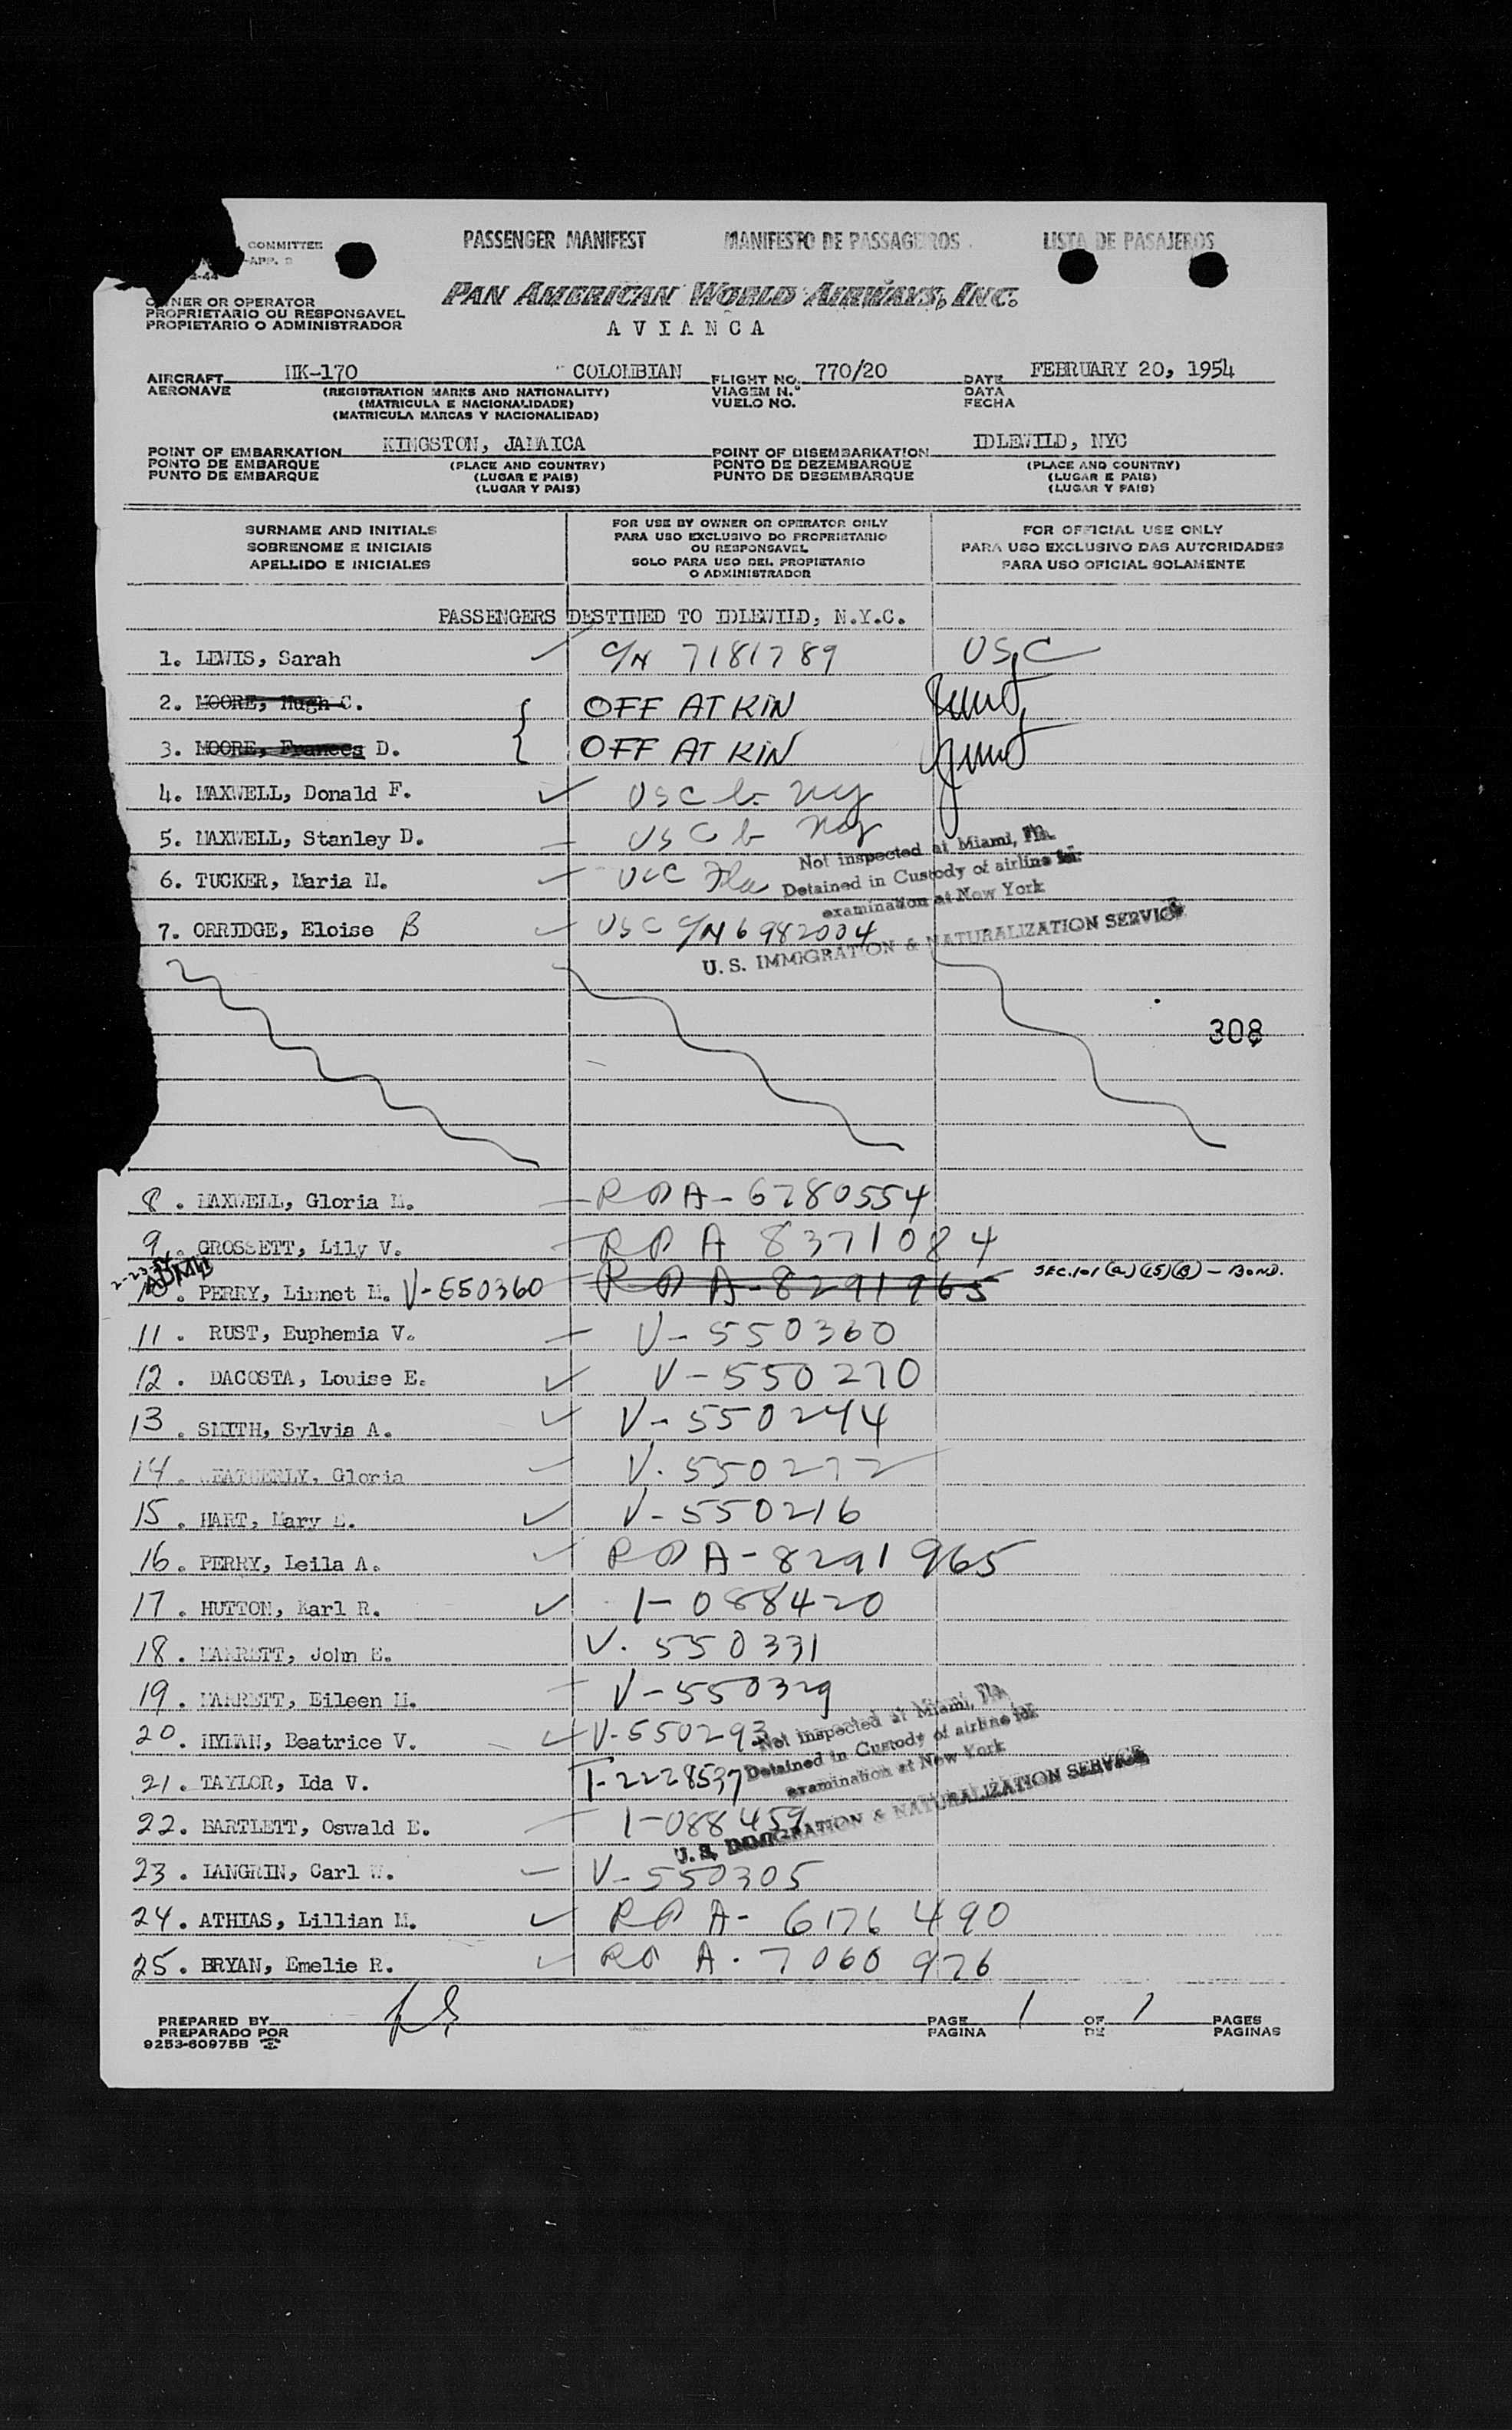 COMMITTEE
-APP. 9
PASSENGER MANIFEST MANIFESTO DE PASSAGEIROS LISTA DE PASAJEROS
OWNER OR OPERATOR
PROPRIETARIO OU RESPONSAVEL
PROPIETARIO O ADMINISTRADOR
PAN AMERICAN WORLD AIRWAYS, INC.
AVIANCA
AIRCRAFT HK-170 COLOMBIAN FLIGHT NO. 770/20 DATE FEBRUARY 20, 1954
AERONAVE (REGISTRATION MARKS AND NATIONALITY) VIAGEM N.º DATA
(MATRICULA E NACIONALIDADE) VUELO NO. FECHA
(MATRICULA MARCAS Y NACIONALIDAD)
POINT OF EMBARKATION KINGSTON, JAMAICA POINT OF DISEMBARKATION IDLEWILD, NYC
PONTO DE EMBARQUE (PLACE AND COUNTRY) PONTO DE DEZEMBARQUE (PLACE AND COUNTRY)
PUNTO DE EMBARQUE (LUGAR E PAIS) PUNTO DE DESEMBARQUE (LUGAR E PAIS)
(LUGAR Y PAIS) (LUGAR Y PAIS)
SURNAME AND INITIALS FOR USE BY OWNER OR OPERATOR ONLY FOR OFFICIAL USE ONLY
SOBRENOME E INICIAIS PARA USO EXCLUSIVO DO PROPRIETARIO PARA USO EXCLUSIVO DAS AUTORIDADES
APELLIDO E INICIALES OU RESPONSAVEL PARA USO OFICIAL SOLAMENTE
SOLO PARA USO DEL PROPIETARIO
O ADMINISTRADOR
PASSENGERS DESTINED TO IDLEWILD, N.Y.C.
1. LEWIS, Sarah C/N 7181789 USC
2. MOORE, Hugh C. OFF AT KIN
3. MOORE, Frances D. OFF AT KIN
4. MAXWELL, Donald F. USC b- NY
5. MAXWELL, Stanley D. USC b NY
6. TUCKER, Maria M. USC Fla
7. ORRIDGE, Eloise B USC C/N 6982004
Not inspected at Miami, Fla.
Detained in Custody of airline for
examination at New York
U. S. IMMIGRATION & NATURALIZATION SERVICE
308
8. MAXWELL, Gloria M. RP A-6780554
9. GROSSETT, Lily V. RP A 8371084
2-23-54 ADMD
10. PERRY, Linnet M. V-550360 RP A-8291965 SEC.101(a)(15)(B) - BOND.
11. RUST, Euphemia V. V-550360
12. DACOSTA, Louise E. V-550270
13. SMITH, Sylvia A. V-550244
14. WEATHERLY, Gloria V. 550272
15. HART, Mary E. V-550216
16. PERRY, Leila A. RP A-8291965
17. HUTTON, Karl R. I-088420
18. MARRETT, John E. V. 550331
19. MARRETT, Eileen M. V-550329
20. HYMAN, Beatrice V. V-550293
21. TAYLOR, Ida V. T-2228537
22. BARTLETT, Oswald E. I-088459
Not inspected at Miami, Fla.
Detained in Custody of airline for
examination at New York
U. S. IMMIGRATION & NATURALIZATION SERVICE
23. LANGRIN, Carl W. V-550305
24. ATHIAS, Lillian M. RP A-6176490
25. BRYAN, Emelie R. RP A. 7060976
PREPARED BY PAGE 1 OF 1 PAGES
PREPARADO POR PAGINA DE PAGINAS
9253-60975B